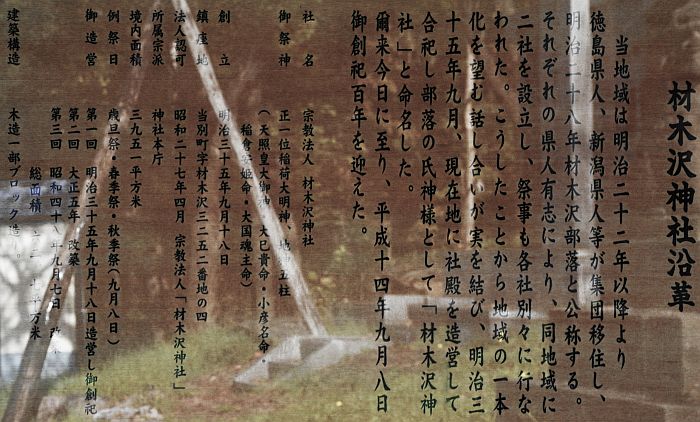 材木沢神社沿革
当地域は明治二十二年以降より
徳島県人、新潟県人等が集団移住し、
明治二十八年材木沢部落と公称する。
それぞれの県人有志により、同地域に
二社を設立し、祭事も各社別々に行な
われた。こうしたことから地域の一本
化を望む話し合いが実を結び、明治三
十五年九月、現在地に社殿を造営して
合祀し部落の氏神様として「材木沢神
社」と命名した。
爾来今日に至り、平成十四年九月八日
御創祀百年を迎えた。
社名 宗教法人 材木沢神社
御祭神 正一位稲荷大明神、地神五柱
(天照皇大御神・大巳貴命・小彦名命・
稲倉安姫命・大国魂主命)
創立 明治三十五年九月十八日
鎮座地 当別町字材木沢三二五二番地の四
法人認可 昭和二十七年四月 宗教法人「材木沢神社」
所属宗派 神社本庁
境内面積 三九五一平方米
例祭日 歳旦祭・春季祭・秋季祭(九月八日)
御造営 第一回 明治三十五年九月十八日造営し御創祀
第二回 大正五年 改築
第三回 昭和四十八年九月七日 改
総面積 平方米
建築構造 木造一部ブロック造